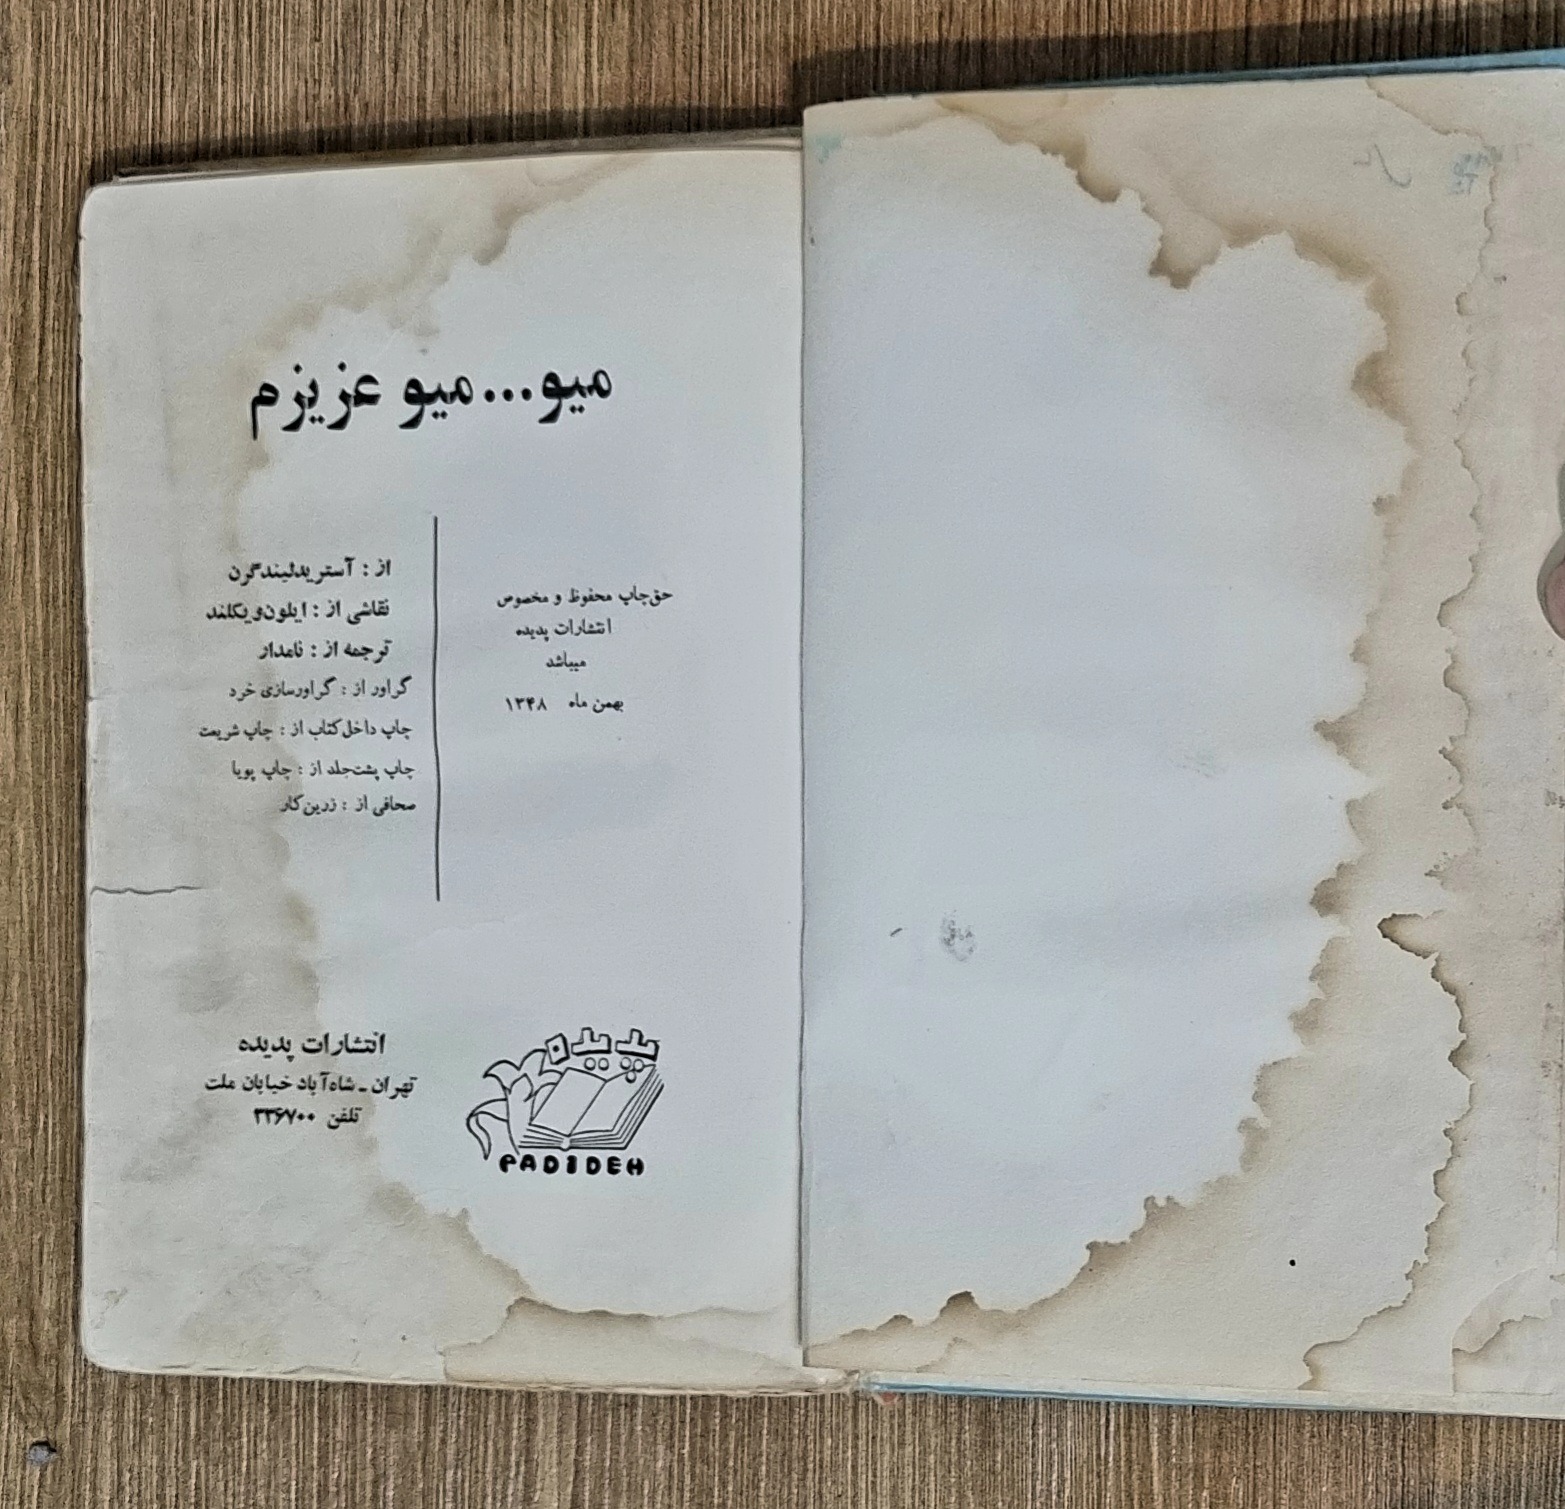 میو...میو عزیزم
حق‌چاپ محفوظ و مخصوص
انتشارات پدیده
میباشد
بهمن ماه ۱۳۴۸
از : آستریدلیندگرن
نقاشی از : ایلون‌ویکلند
ترجمه از : نامدار
گراور از : گراورسازی خرد
چاپ داخل‌کتاب از : چاپ شریعت
چاپ پشت‌جلد از : چاپ پویا
صحافی از : زرین‌کار
پدیده
PADIDEH
انتشارات پدیده
تهران ـ شاه‌آباد خیابان ملت
تلفن ۳۳۶۷۰۰